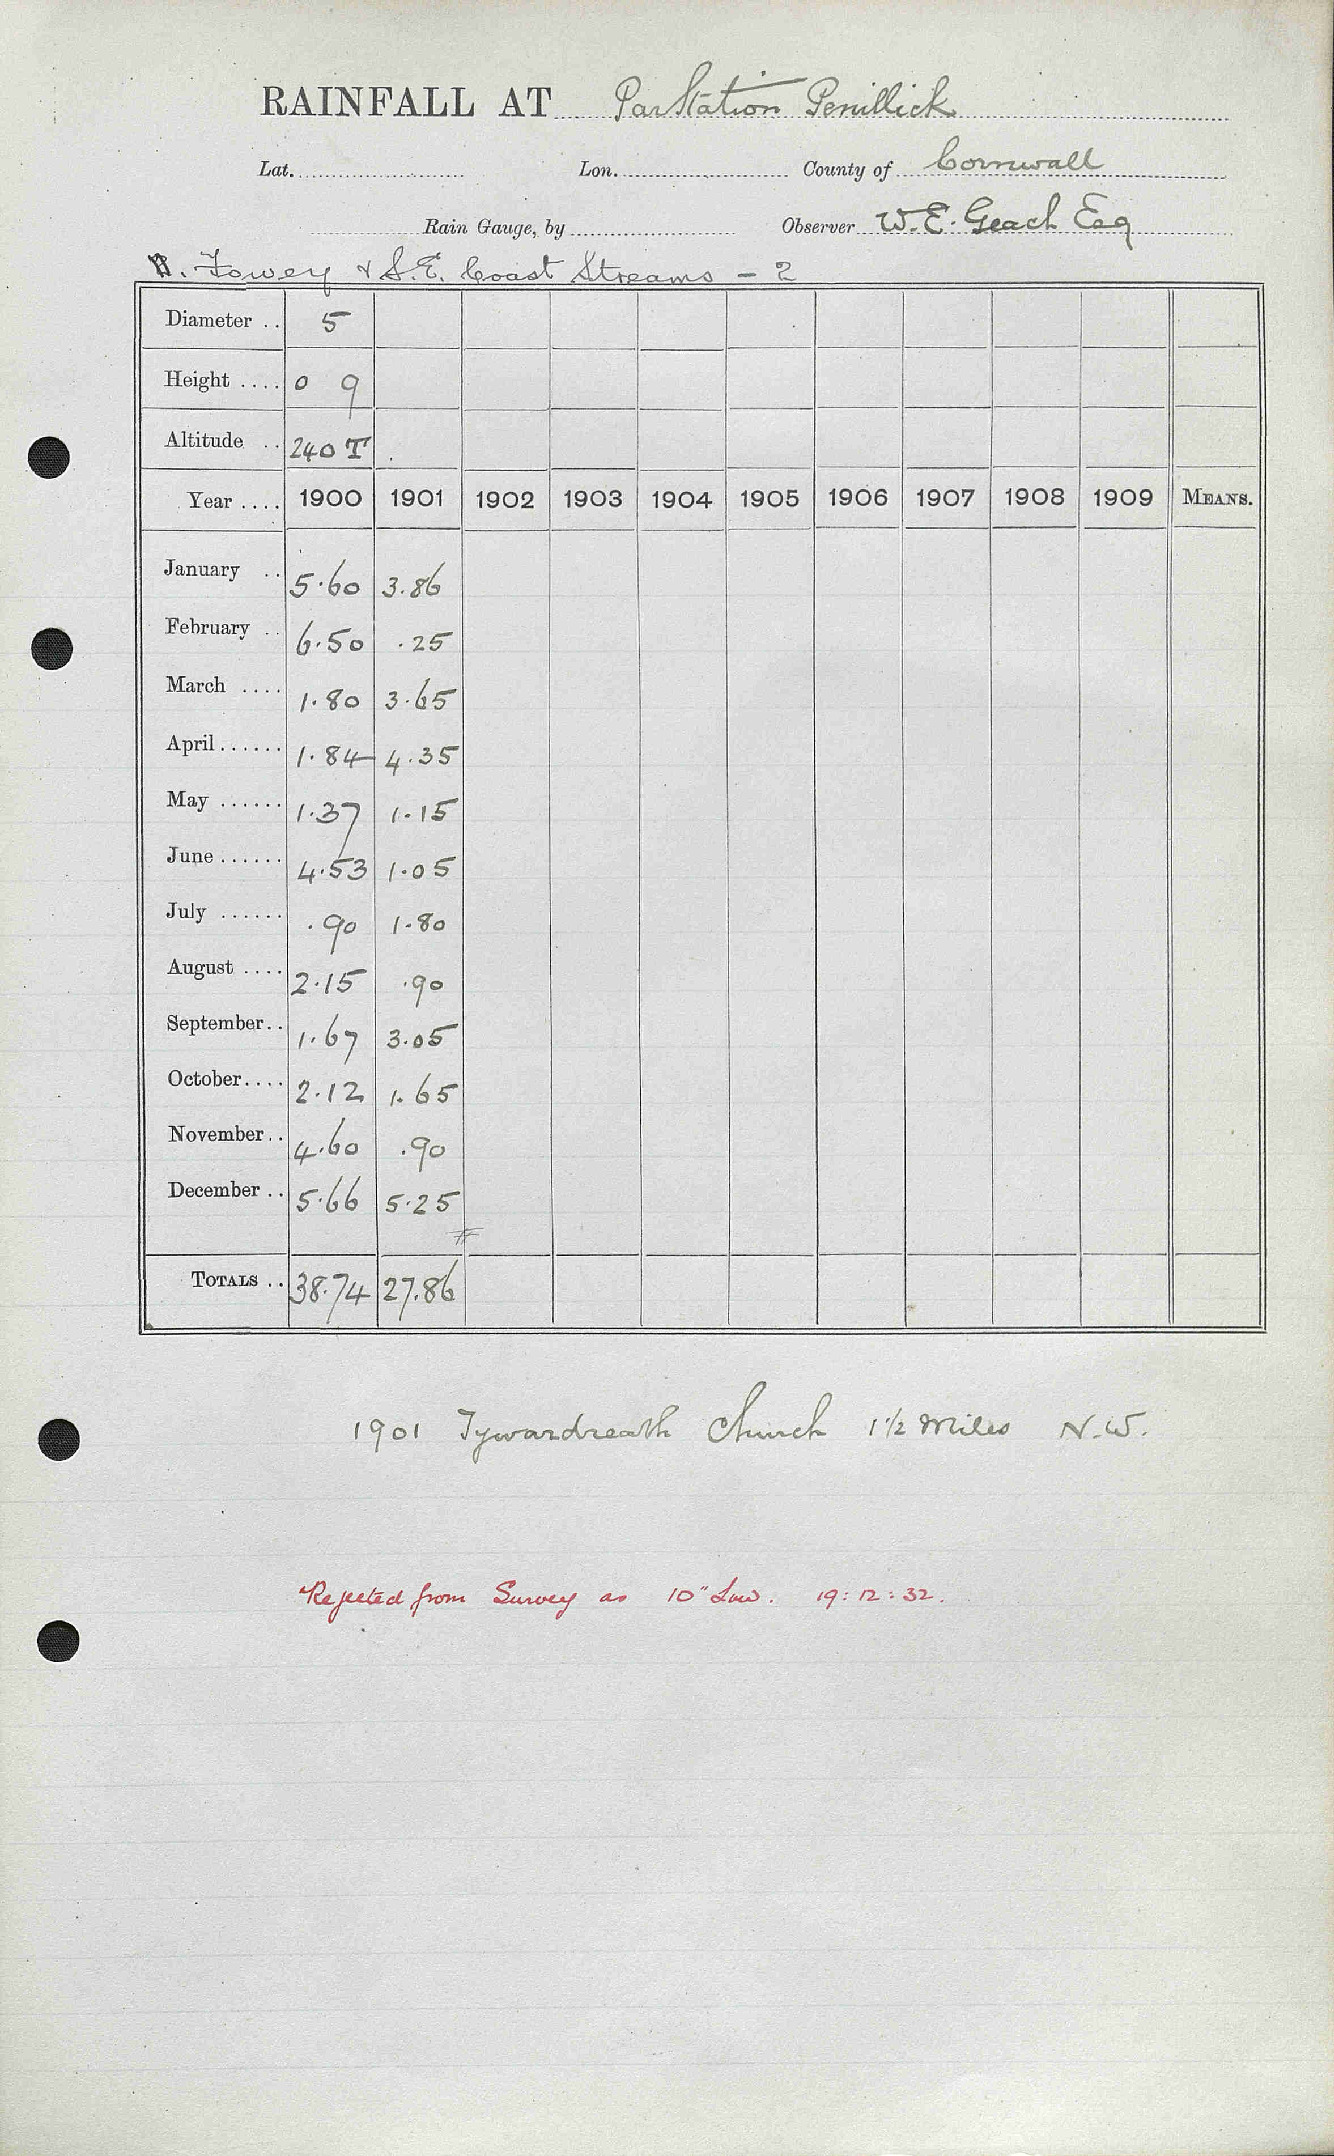 RAINFALL AT Par Station Penillick
Lat. Lon. County of Cornwall
Rain Gauge, by Observer W.E. Geach Esq
Fowey & S.E. Coast Streams - 2
Diameter .. 5
Height .... 0 9
Altitude .. 240 T
Year .... 1900 1901 1902 1903 1904 1905 1906 1907 1908 1909 MEANS.
January .. 5.60 3.86
February .. 6.50 .25
March .... 1.80 3.65
April ...... 1.84 4.35
May ...... 1.37 1.15
June ...... 4.53 1.05
July ...... .90 1.80
August .... 2.15 .90
September.. 1.67 3.05
October.... 2.12 1.65
November.. 4.60 .90
December .. 5.66 5.25
TOTALS .. 38.74 27.86
1901 Tywardreath Church 1 1/2 Miles N.W.
Rejected from Survey as 10" Low. 19:12:32.